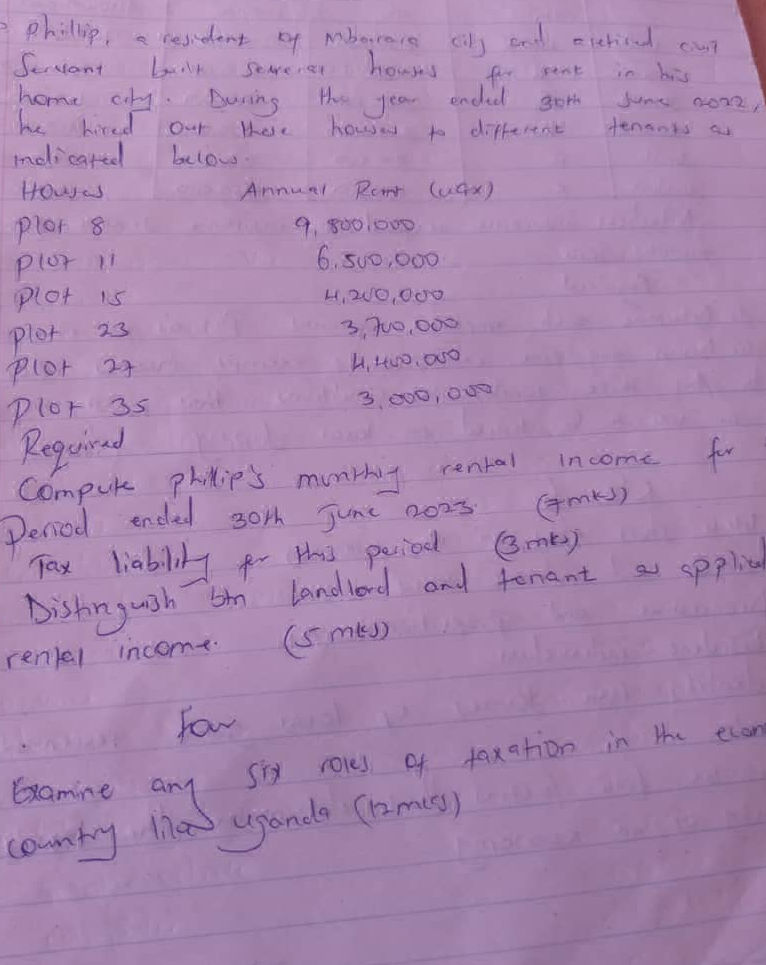 Phillip, a resident of Mbarara city and a retired civil
Servant built several houses for rent in his
home city. During the year ended 30th June 2022,
he hired out these houses to different tenants as
indicated below.
Houses Annual Rent (ugx)
Plot 8 9,800,000
Plot 11 6,500,000
Plot 15 4,200,000
Plot 23 3,700,000
Plot 27 4,400,000
Plot 35 3,000,000
Required
Compute Phillip's monthly rental income for
Period ended 30th June 2023 (7mks)
Tax liability for this period (3mks)
Distinguish btn landlord and tenant as applied
rental income. (5 mks)
Four
Examine any six roles of taxation in the econ
country like uganda (12mks)